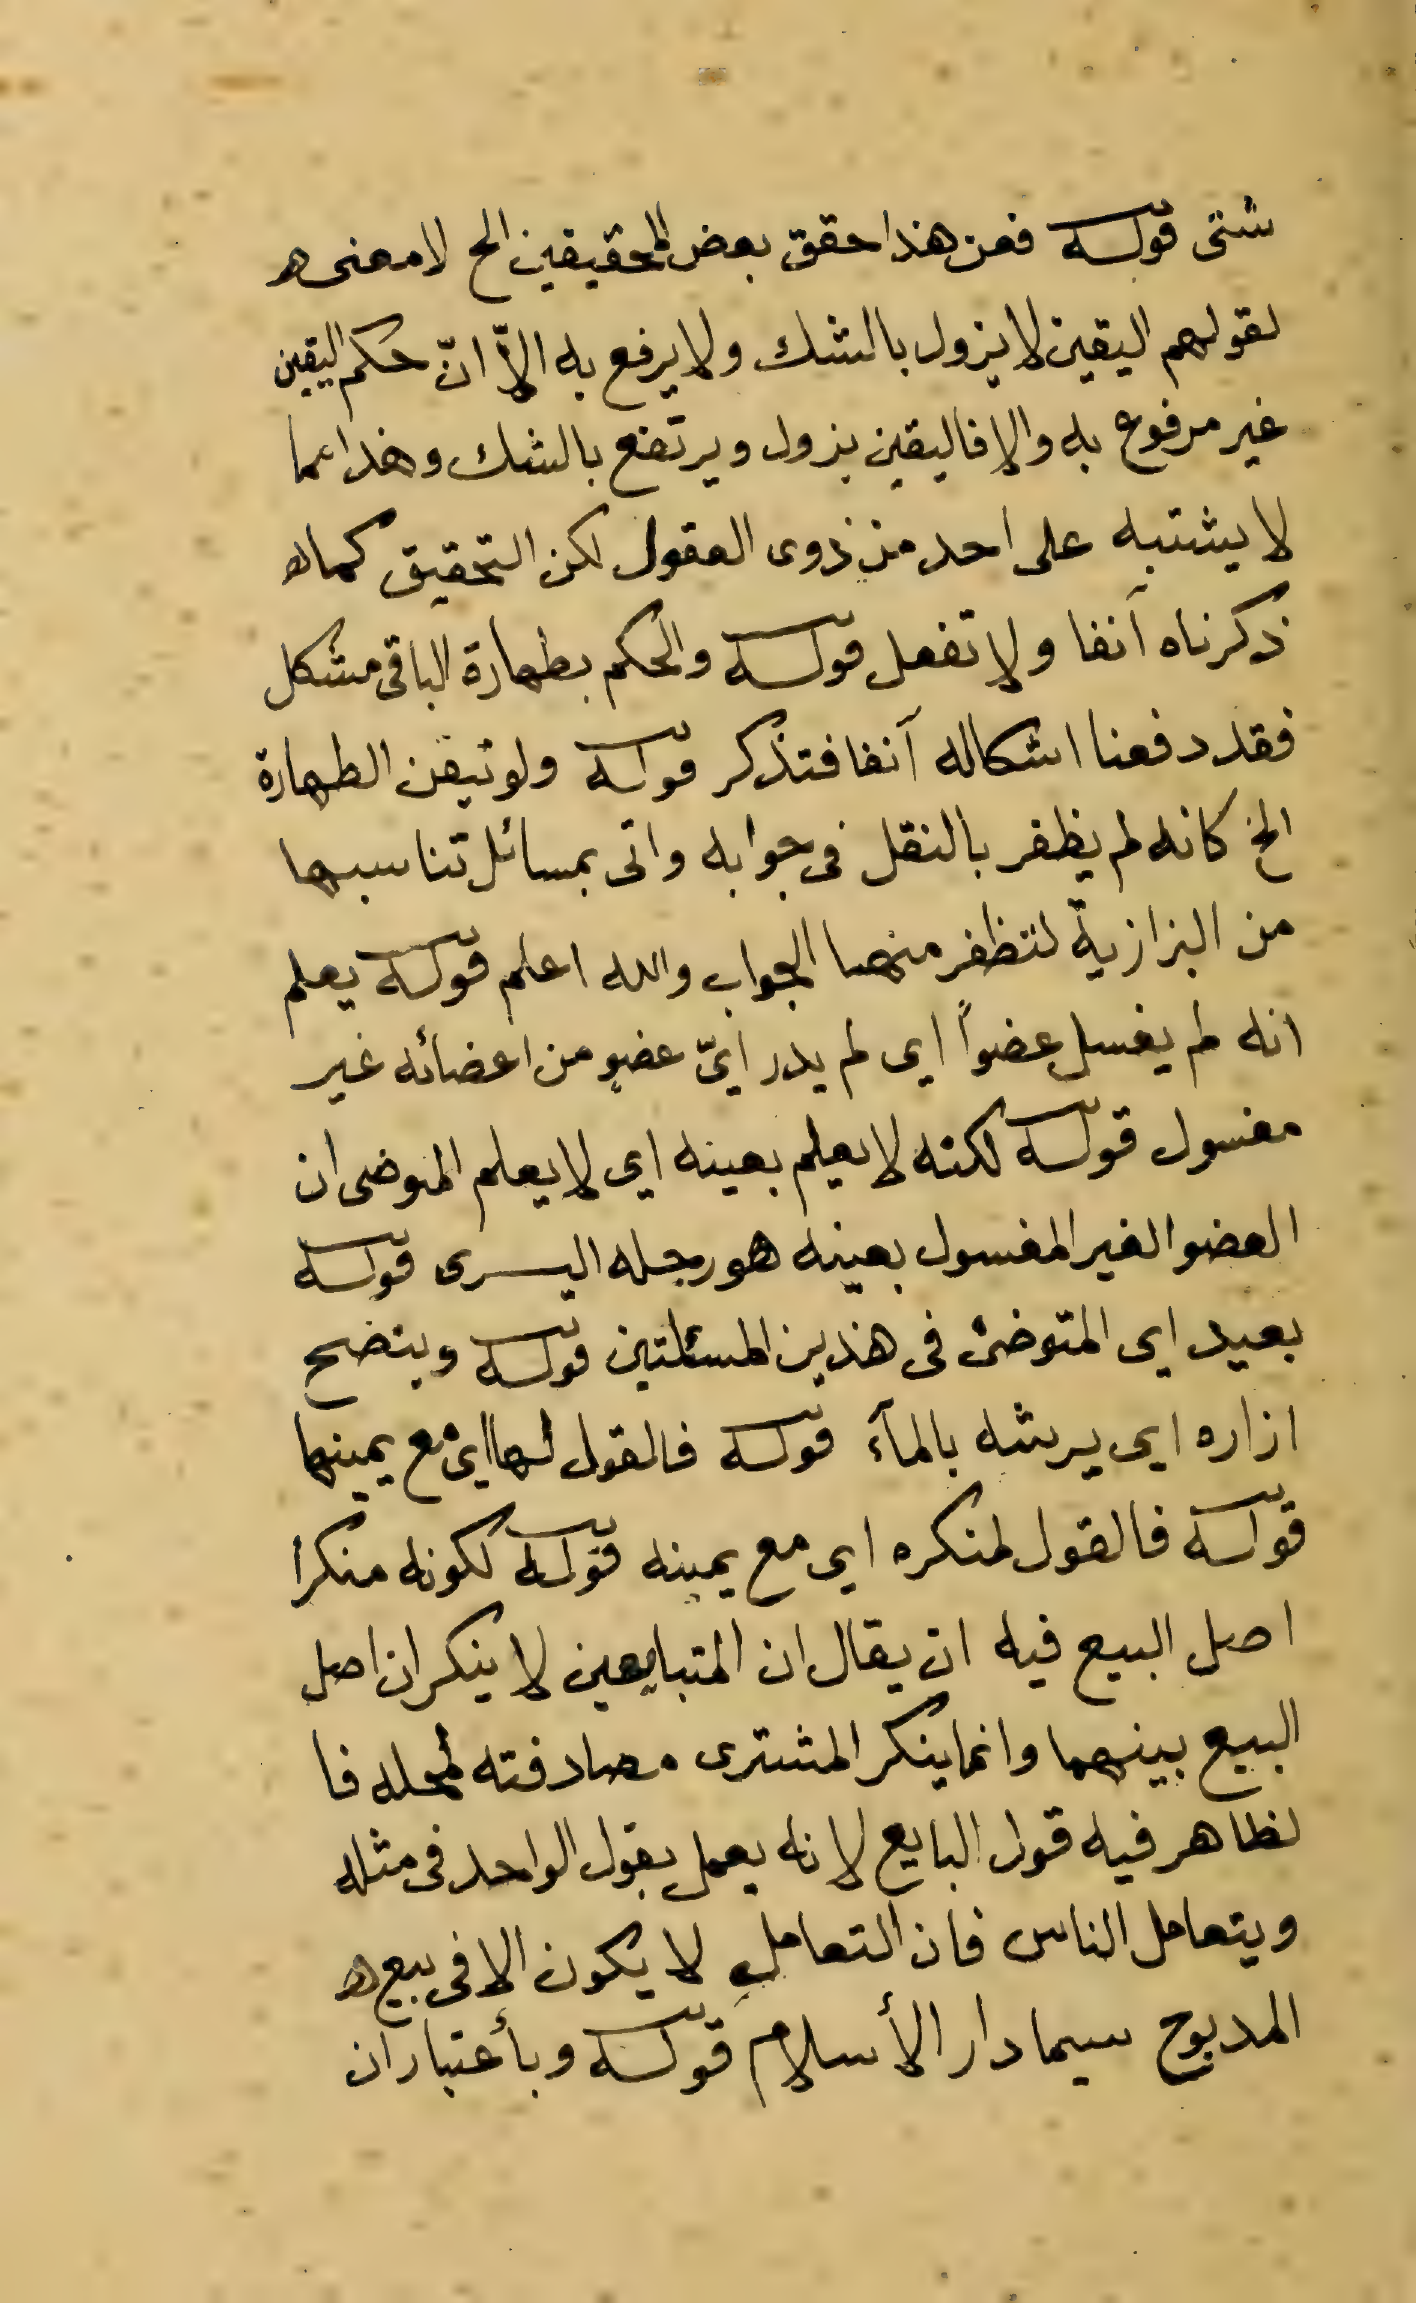 شتى قوله فعن هذا حقق بعض المحقيقين الخ لا معنى ه
لقولهم اليقين لا يزول بالشك ولا يرفع به الاّ انّ حكم اليقين
غير مرفوع به والا فاليقين يزول ويرتفع بالشك وهذا مما
لا يشتبه على احد من ذوى العقول لكن التحقيق كما ه
ذكرناه آنفا ولا تفعل قوله والحكم بطهارة الباقى مشكل
فقد دفعنا اشكاله آنفا فتذكر قوله ولو تيقن الطهارة
الخ كانه لم يظفر بالنقل فى جوابه واتى بمسائل تناسبها
من البزازية لتظفر منها الجواب والله اعلم قوله يعلم
انه لم يغسل عضواً اى لم يدر اىّ عضو من اعضائه غير
مغسول قوله لكنه لا يعلم بعينه اى لا يعلم المتوضى ان
العضو الغير المغسول بعينه هو رجله اليسرى قوله
يعيد اى المتوضئ فى هذين المسئلتين قوله وينضح
ازاره اى يرشه بالمآء قوله فالقول لها اى مع يمينها
قوله فالقول لمنكره اى مع يمينه قوله لكونه منكرا
اصل البيع فيه ان يقال ان المتبايعين لا ينكران اصل
البيع بينهما وانما ينكر المشترى مصادفته لمحله فا
لظاهر فيه قول البايع لانه يعمل بقول الواحد فى مثله
ويتعامل الناس فان التعامل لا يكون الا فى بيع ه
المدبوح سيما دار الأسلام قوله وبأعتبار ان